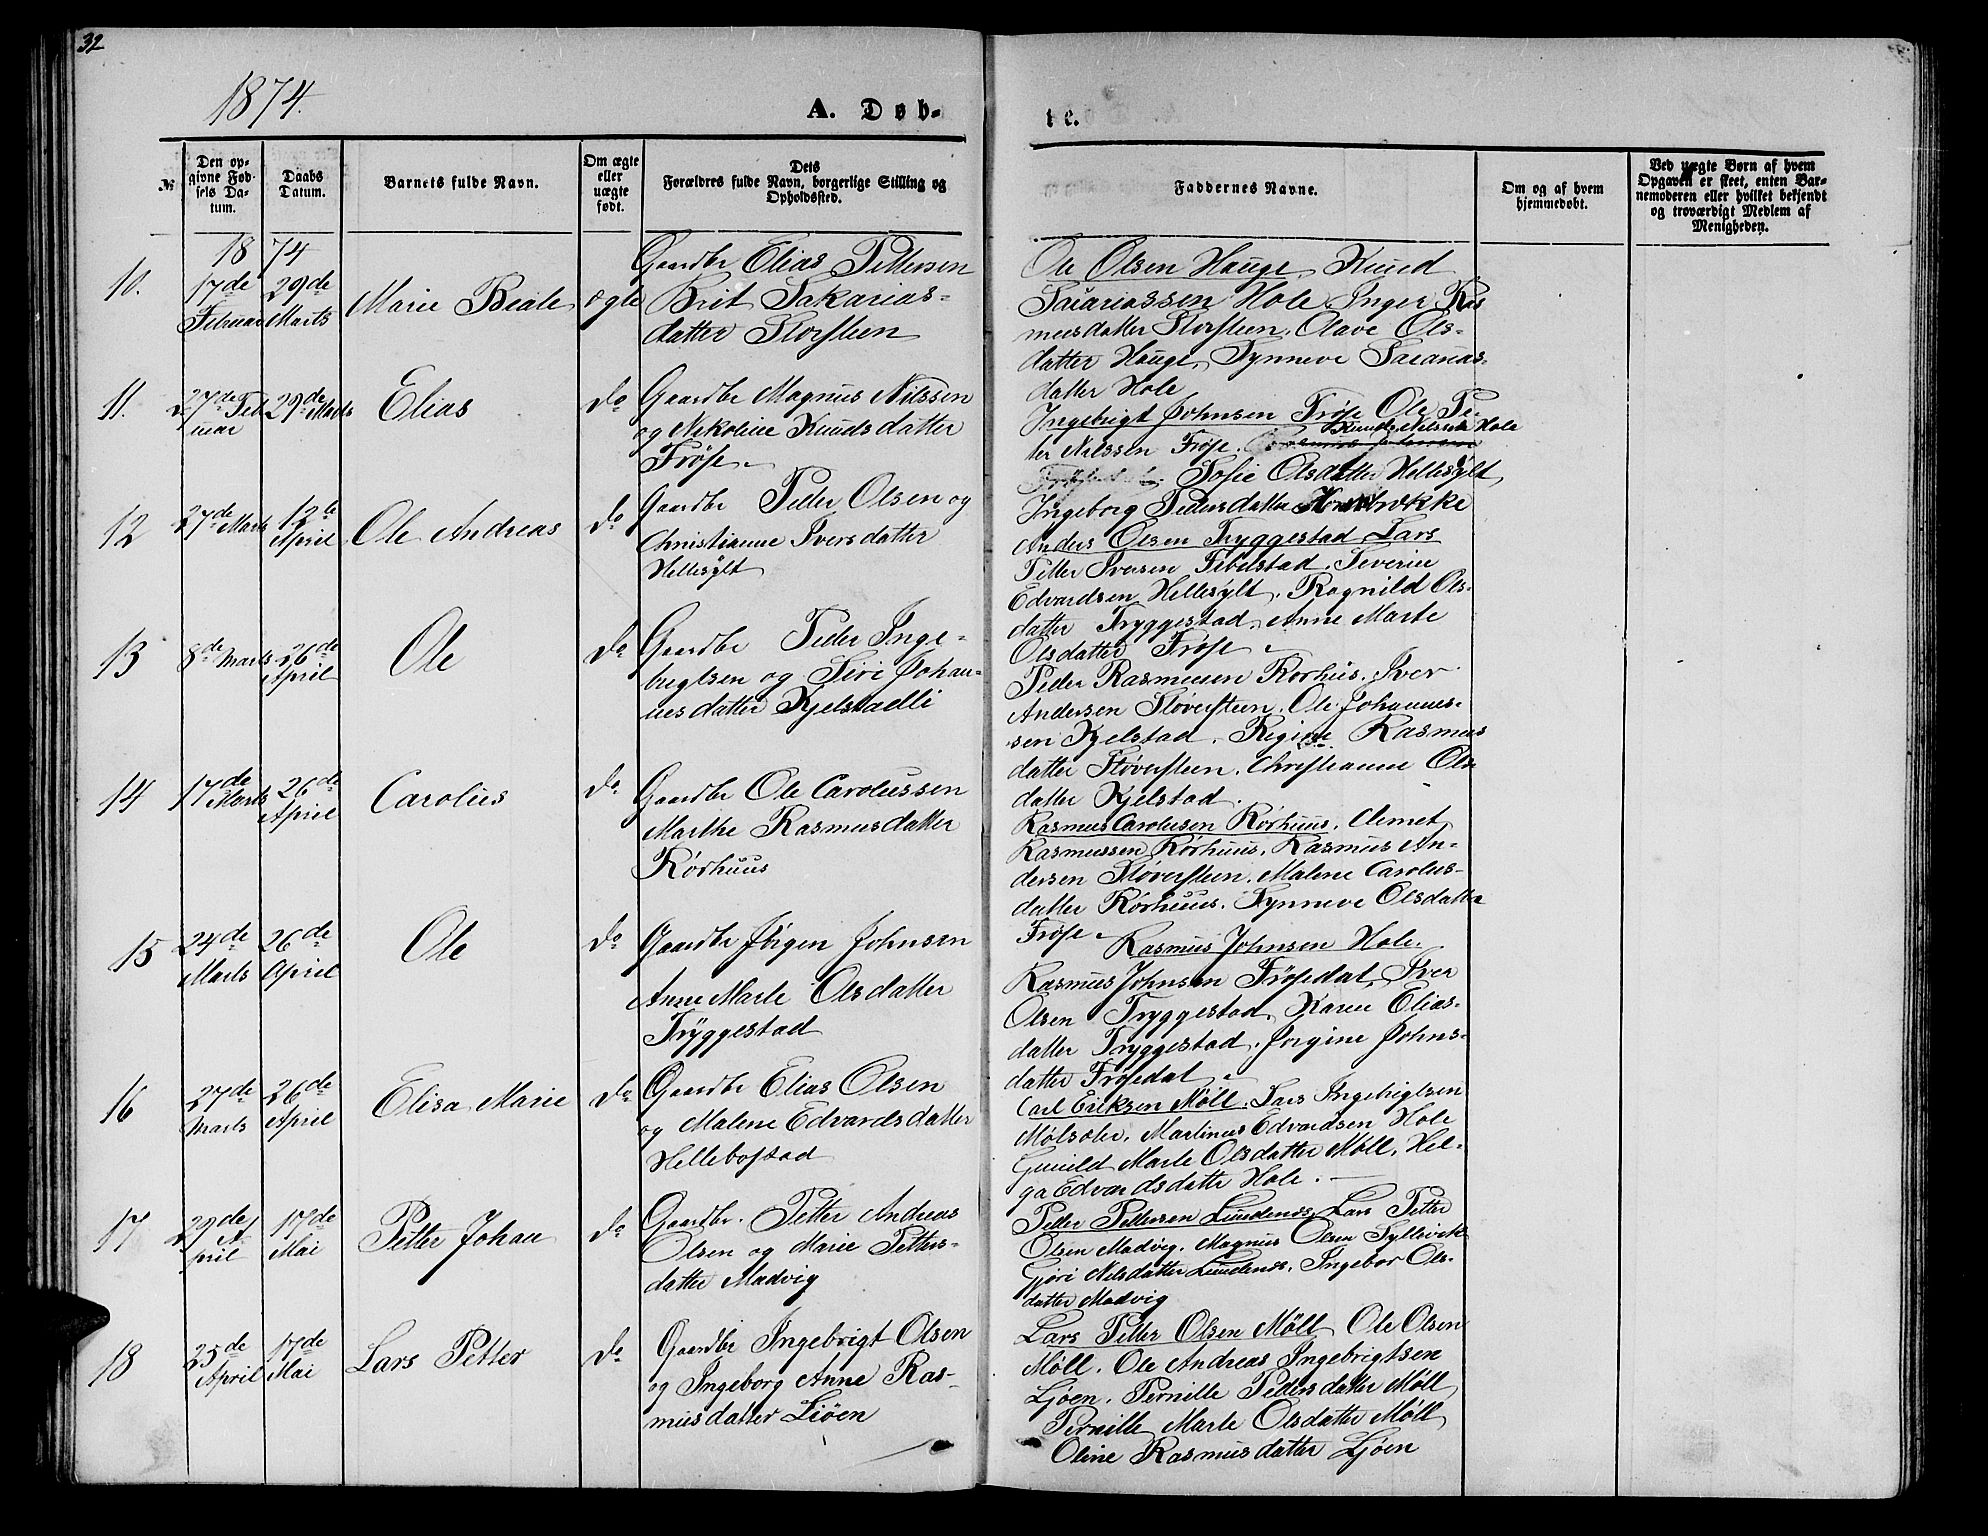 32
1874.
A. Døb-
te.
№
Den op-
givne Fød-
sels Da-
tum.
Daabs
Datum.
Barnets fulde Navn.
Om ægte
eller
uægte
født.
Dets
Forældres fulde Navn, borgerlige Stilling og
Opholdssted.
Faddernes Navne.
Om og af hvem
hjemmedøbt.
Ved uægte Børn af hvem
Opgaven er skeet, enten Bar-
nemoderen eller hvilket bekjendt
og troværdigt Medlem af
Menigheden.
1874
10.
17de
Februar
29de
Marts
Marie Beate
ægte
Gaardbr Elias Pettersen
Brit Sakarias-
datter Storsteen
Ole Olsen Hauge, Knud
Sacariassen Hole, Inger Ras
musdatter Storsteen, Olave Ols-
datter Hauge, Synneve Sacarias-
datter Hole
11.
27de Feb
ruar
29de Marts
Elias
do
Gaardbr Magnus Nilssen
og Nikoline Knudsdatter
Frøse
Ingebrigt Johnsen Frøse Ole Pe-
Knud Nilssen Hole
ter Nilssen Frøse,
Sofie Olsdatter Hellesylt,
Ingeborg Pedersdatter Hornbrække
12
27de Marts
12te
April
Ole Andreas
do
Gaardbr Peder Olsen og
Christianne Iversdatter
Hellesylt
Anders Olsen Tryggestad, Lars
Petter Iversen Fibelstad, Severin
Edvardsen Hellesylt, Ragnild Ols-
datter Tryggestad, Anne Marte
Olsdatter Frøse
13
8de Marts
26de
April
Ole
do
Gaardbr Peder Inge-
bregtsen og Siri Johan-
nesdatter Kjelstadli
Peder Rasmusen Rørhus, Iver
Andersen Støversteen, Ole Johannes-
sen Kjelstad, Regine Rasmus
datter Støversteen, Christianne Ols
datter Kjelstad.
14
17de
Marts
26de
April
Carolus
do
Gaardbr Ole Carolussen
Marthe Rasmusdatter
Rørhuus
Rasmus Carolusen Rørhuus, Clemet
Rasmussen Rørhuus, Rasmus An-
dersen Støversteen, Malene Carolus-
datter Rørhuus, Synneve Olsdatter
Frøse
15
24de
Marts
26de
April
Ole
do
Gaardbr Jørgen Johnsen
Anne Marte Olsdatter
Tryggestad
Rasmus Johnsen Hole,
Rasmus Johnsen Frøsedal, Iver
Olsen Tryggestad, Karen Elias-
datter Tryggestad, Jorgine Johns-
datter Frøsedal
16
27de
Marts
26de
April
Elisa Marie
do
Gaardbr Elias Olsen
og Malene Edvardsdatter
Hellebostad
Carl Eriksen Møll, Lars Ingebrigtsen
Mølsæter, Martinus Edvardsen Hole
Gunild Marte Olsdatter Møll, Hel-
ga Edvardsdatter Hole.
17
29de A
pril
17de
Mai
Petter Johan
do
Gaardbr. Petter Andreas
Olsen og Marie Petters-
datter Madvig
Petter Pettersen Lundenes, Lars Petter
Olsen Madvig, Magnus Olsen Syltevik
Gjøri Nilsdatter Lundenes, Ingebor Ols-
datter Madvig
18
25de
April
17de
Mai
Lars Petter
do
Gaardbr Ingebrigt Olsen
og Ingeborg Anne Ras-
musdatter Ljøen
Lars Petter Olsen Møll, Ole Olsen
Møll, Ole Andreas Ingebrigtsen
Ljøen, Pernille Pedersdatter Møll,
Pernille Marte Olsdatter Møll,
Oline Rasmusdatter Ljøen